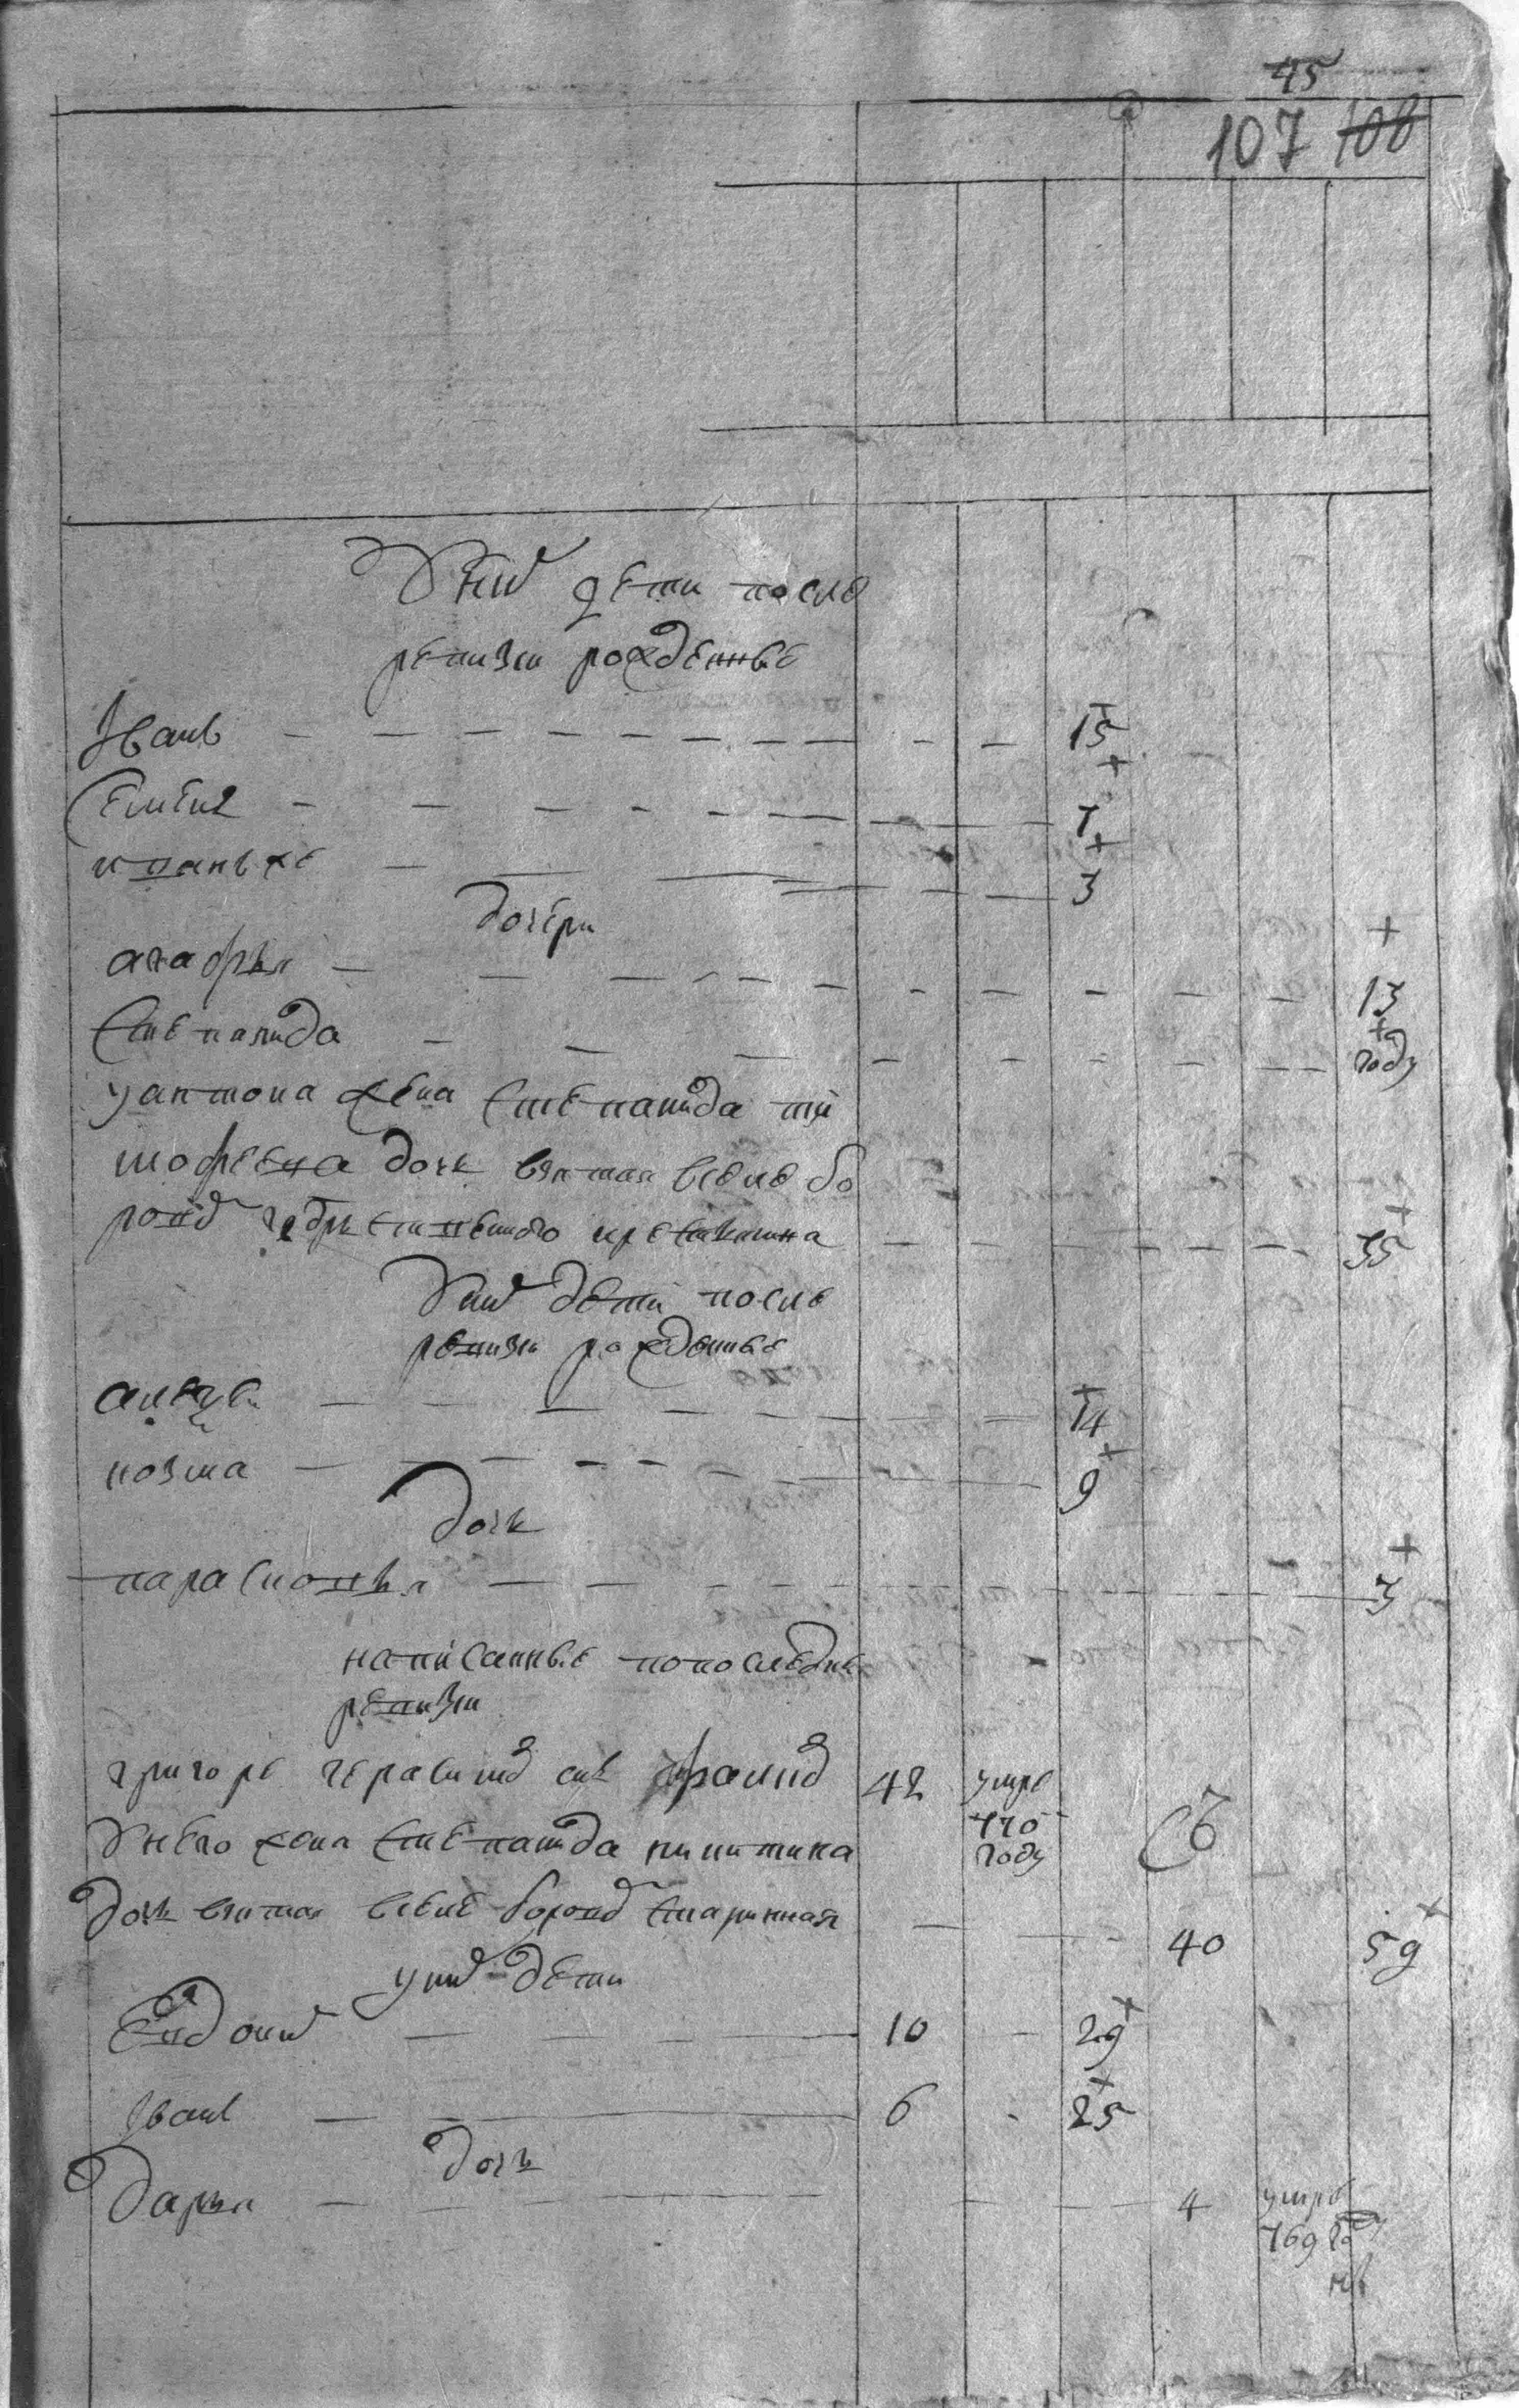 45
107 108
У них дети после
ревизи рожденные
Иванъ 15
Семенъ 7
и ванъ же 3
дочери
агафья 13
Степанида году
у антона жена степанида ти
мофеевна дочь взятая в селе бо
ровом крестьянина 35
У них дети после
ревизи рожденные
14
козма 9
дочь
парасковья 3
написанные по последней
ревизи
григорей герасимов сын 42 умре 770 году
У него жена степанида никитина
дочь взятая в селе боровом старинная 40 59
у них дети
Евдоким 10 29
Иван 6 25
дочь
дарья 4 умре
769 году